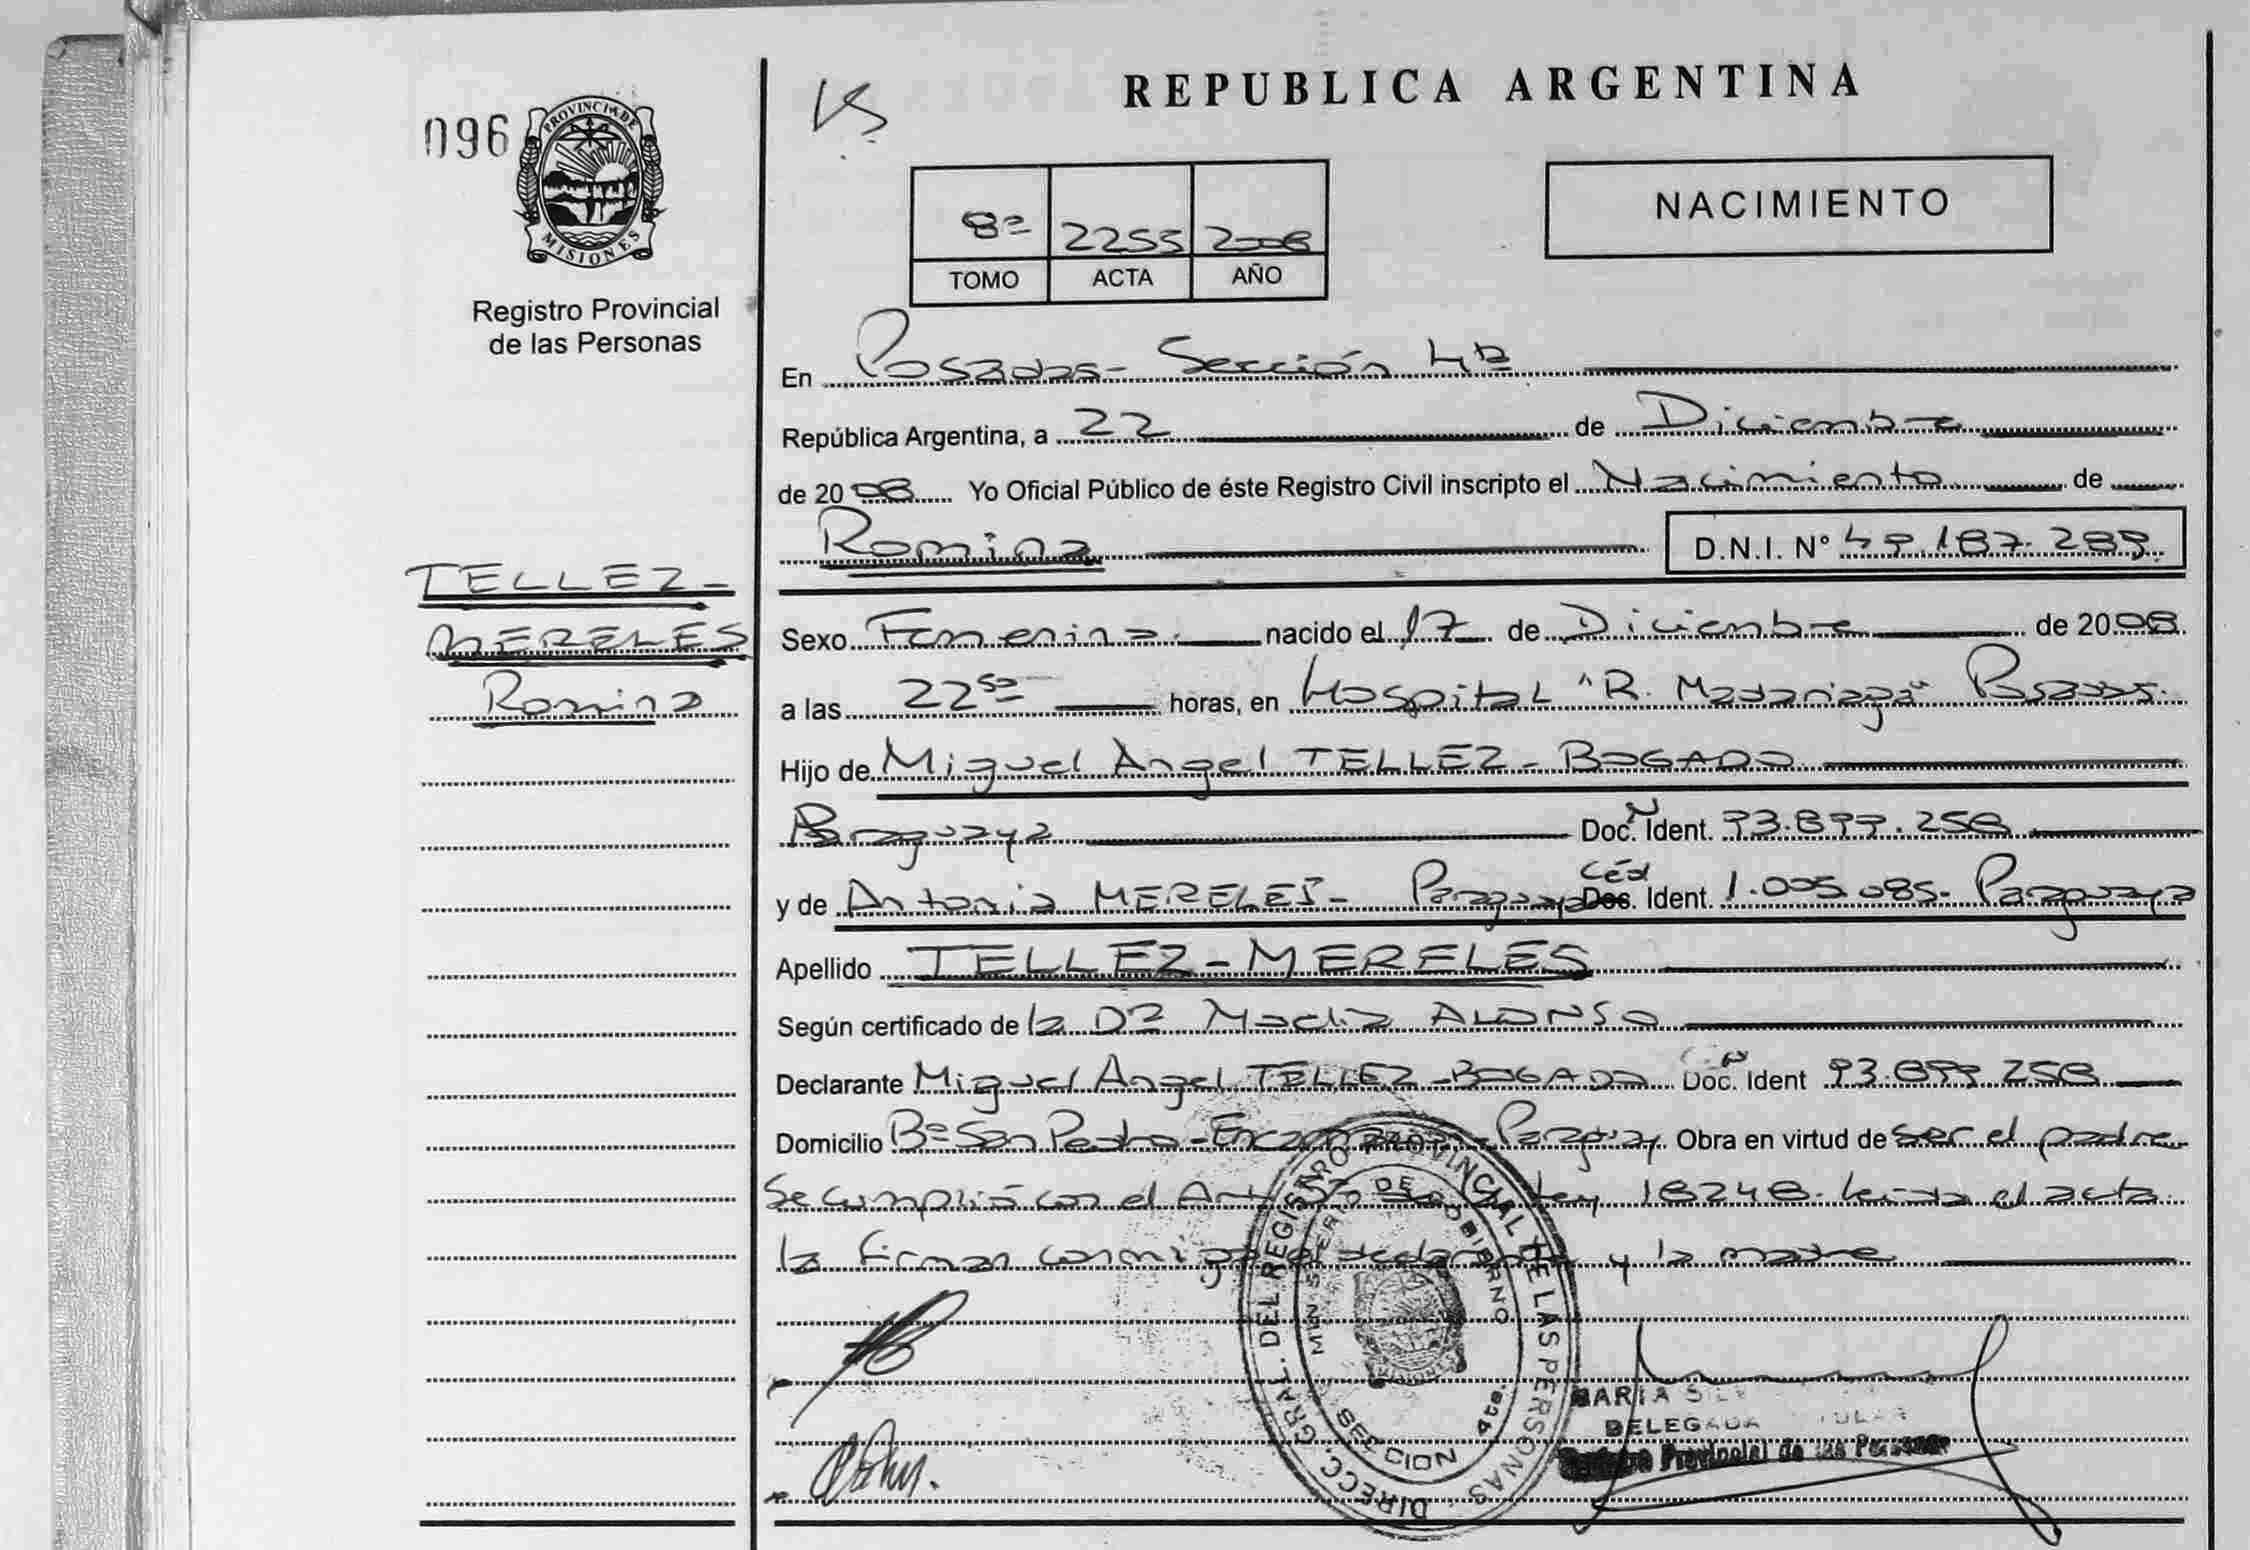 REPUBLICA ARGENTINA
096
PROVINCIA DE MISIONES
Registro Provincial
de las Personas
8º 2255 2008
TOMO ACTA AÑO
NACIMIENTO
En Posadas- Sección 4ª
República Argentina, a 22 de Diciembre
de 2008 Yo Oficial Público de éste Registro Civil inscripto el Nacimiento de
Romina D.N.I. Nº 49.187.289
TELLEZ-
MERELES
Romina
Sexo Femenina nacido el 17 de Diciembre de 2008
a las 22⁵⁰ horas, en Hospital "R. Madariaga" Posadas.
Hijo de Miguel Angel TELLEZ-BOGADO
Paraguaya Doc. Ident. 93.899.258
y de Antonia MERELES- Paraguaya Céd Doc. Ident. 1.005.085- Paraguaya
Apellido TELLEZ-MERELES
Según certificado de la Dª ALONSO
Declarante Miguel Angel TELLEZ-BOGADO Doc. Ident 93.899.258
Domicilio Bº San Pedro-Encarnación-Paraguay Obra en virtud de ser el padre
Se cumplió con el Art Ley 18248. Leida el acta
la firman conmigo el declarante y la madre
DIRECC. GRAL. DEL REGISTRO PROVINCIAL DE LAS PERSONAS
MINISTERIO DE GOBIERNO
SECCION 4ta.
MARIA
DELEGADA TITULAR
Registro Provincial de las Personas